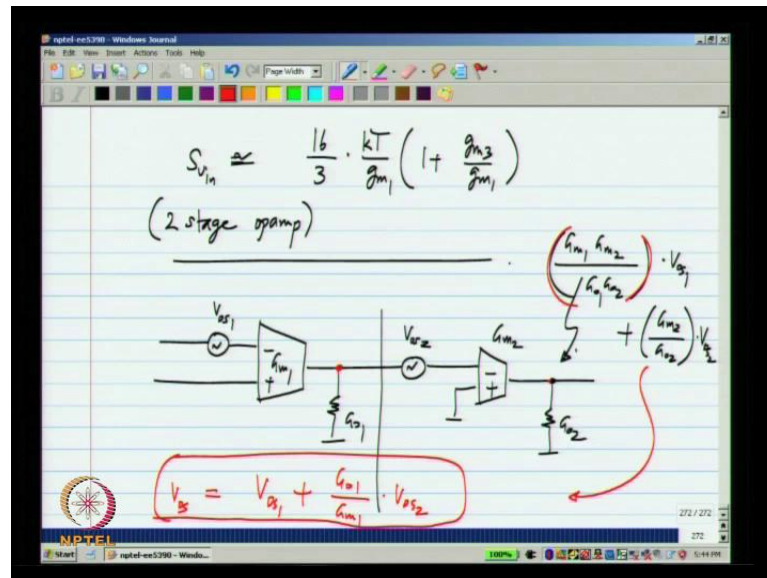 nptel-ee5390 - Windows Journal
File Edit View Insert Actions Tools Help
Page Width
S_{V_{in}} ≅ 16/3 · kT/g_{m1} (1 + g_{m3}/g_{m1})
(2 stage opamp)
(G_{m1} G_{m2} / G_{o1} G_{o2}) · V_{os1}
+ (G_{m2}/G_{o2}) · V_{os2}
V_{os1} V_{os2} G_{m2}
- -
G_{m1}
+ +
G_{o1} G_{o2}
V_{os} = V_{os1} + G_{o1}/G_{m1} · V_{os2}
272 / 272
272
NPTEL
Start nptel-ee5390 - Windo... 100% 5:44 PM